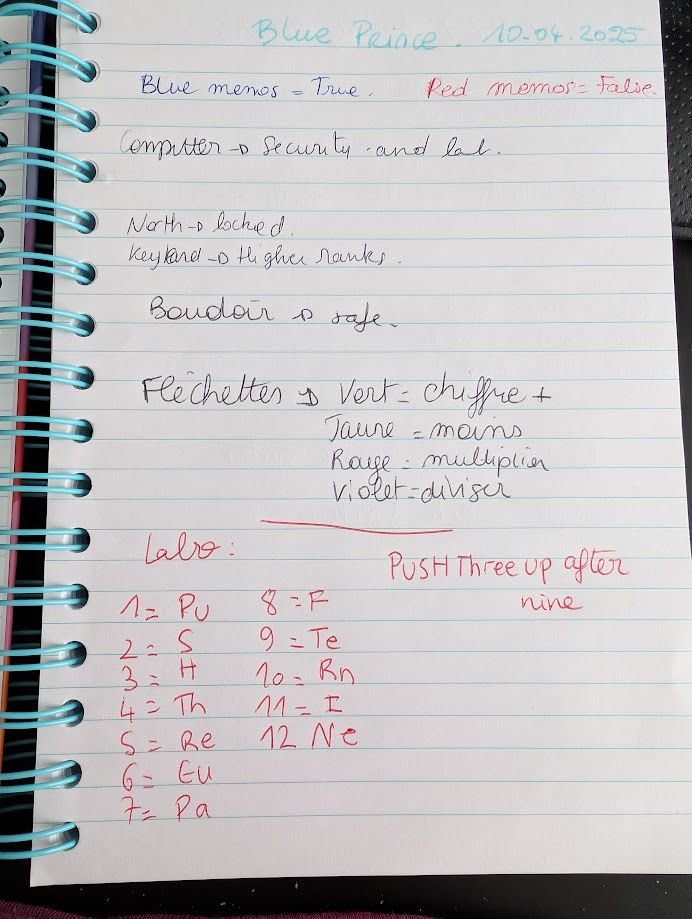 Blue Prince. 10-04.2025
Blue memos = True. Red memos = False.
Computter → Security and lab.
North → locked.
Keykard → Higher ranks.
Boudoir → safe.
Fléchettes → Vert = chiffre +
Jaune = moins
Rouge = multiplier
Violet = diviser
Labo :
PUSH Three up after
nine
1 = Pu
2 = S
3 = H
4 = Th
5 = Re
6 = Eu
7 = Pa
8 = F
9 = Te
10 = Rn
11 = I
12 Ne